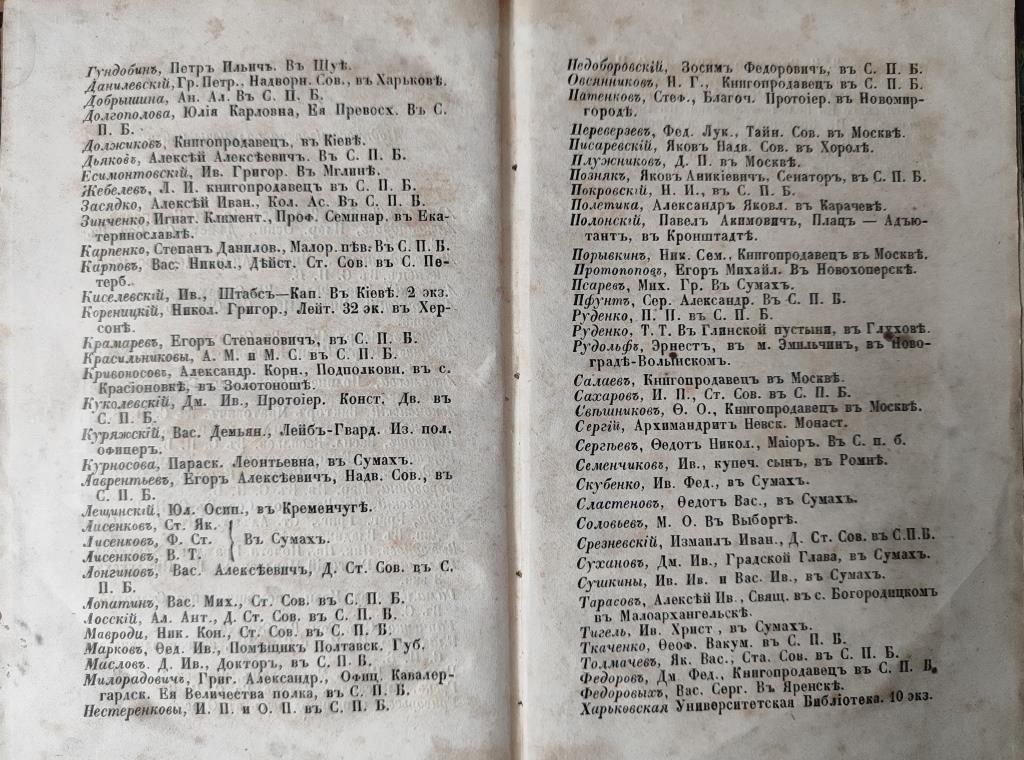 Гундобинъ, Петръ Ильичъ. Въ Шуѣ.
Данилевскій, Гр. Петр., Надворн. Сов., въ Харьковѣ.
Добрышина, Ан. Ал. Въ С. П. Б.
Долгополова, Юлія Карловна, Ея Превосх. Въ С.
П. Б.
Должиковъ, Книгопродавецъ, въ Кіевѣ.
Дьяковъ, Алексѣй Алексѣевичъ. Въ С. П. Б.
Есимонтовскій, Ив. Григор. Въ Мглинѣ.
Жебелевъ, Л. И. книгопродавецъ въ С. П. Б.
Засядко, Алексѣй Иван., Кол. Ас. Въ С. П. Б.
Зинченко, Игнат. Климент., Проф. Семинар. въ Ека-
теринославлѣ.
Карпенко, Степанъ Данилов., Малор. пѣв. Въ С. П. Б.
Карповъ, Вас. Никол., Дѣйст. Ст. Сов. въ С. Пе-
терб.
Киселевскій, Ив., Штабсъ—Кап. Въ Кіевѣ. 2 экз.
Кореницкій, Никол. Григор., Лейт. 32 эк. въ Хер-
сонѣ.
Крамаревъ, Егоръ Степановичъ, въ С. П. Б.
Красильниковы, А. М. и М. С. въ С. П. Б.
Кривоносовъ, Александр. Корн., Подполковн. въ с.
Красіоновкѣ, въ Золотоношѣ.
Куколевскій, Дм. Ив., Протоіер. Конст. Дв. въ
С. П. Б.
Куряжскій, Вас. Демьян., Лейбъ-Гвард. Из. пол.
офицеръ.
Курносова, Параск. Леонтьевна, въ Сумахъ.
Лаврентьевъ, Егоръ Алексѣевичъ, Надв. Сов., въ
С. П. Б.
Лещинскій, Юл. Осип., въ Кременчугѣ.
Лисенковъ, Ст. Як.
Лисенковъ, Ф. Ст. } Въ Сумахъ.
Лисенковъ, В. Т.
Лонгиновъ, Вас. Алексѣевичъ, Д. Ст. Сов. въ С.
П. Б.
Лопатинъ, Вас. Мих., Ст. Сов. въ С. П. Б.
Лосскій, Ал. Ант., Д. Ст. Сов. въ С. П. Б.
Мавроди, Ник. Кон., Ст. Сов. въ С. П. Б.
Марковъ, Ѳед. Ив., Помѣщикъ Полтавск. Губ.
Масловъ. Д. Ив., Докторъ, въ С. П. Б.
Милорадовичъ, Григ. Александр., Офиц. Кавалер-
гардск. Ея Величества полка, въ С. П. Б.
Нестеренковы, И. П. и О. П. въ С. П. Б.
Недоборовскій, Зосимъ Федоровичъ, въ С. П. Б.
Овсянниковъ, Н. Г., Книгопродавецъ въ С. П. Б.
Патенковъ, Стеф., Благоч. Протоіер. въ Новомир-
городѣ.
Переверзевъ, Фед. Лук., Тайн. Сов. въ Москвѣ.
Писаревскій, Яковъ Надв. Сов. въ Хоролѣ.
Плужниковъ, Д. П. въ Москвѣ.
Познякъ, Яковъ Аникіевичъ, Сенаторъ, въ С. П. Б.
Покровскій, Н. И., въ С. П. Б.
Полетика, Александръ Яковл. въ Карачевѣ.
Полонскій, Павелъ Акимовичъ, Плацъ — Адъю-
тантъ, въ Кронштадтѣ.
Порывкинъ, Ник. Сем., Книгопродавецъ въ Москвѣ.
Протопоповъ, Егоръ Михайл. Въ Новохоперскѣ.
Псаревъ, Мих. Гр. Въ Сумахъ.
Пфунтъ, Сер. Александр. Въ С. П. Б.
Руденко, П. П. въ С. П. Б.
Руденко, Т. Т. Въ Глинской пустыни, въ Глуховѣ.
Рудольфъ, Эрнестъ, въ м. Эмильчин, въ Ново-
градѣ-Волынскомъ.
Салаевъ, Книгопродавецъ въ Москвѣ.
Сахаровъ, И. П., Ст. Сов. въ С. П. Б.
Свѣшниковъ, Ѳ. О., Книгопродавецъ въ Москвѣ.
Сергій, Архимандритъ Невск. Монаст.
Сергѣевъ, Ѳедотъ Никол., Маіоръ. Въ С. п. б.
Семенчиковъ, Ив., купеч. сынъ, въ Ромнѣ.
Скубенко, Ив. Фед., въ Сумахъ.
Сластеновъ, Ѳедотъ Вас., въ Сумахъ.
Соловьевъ, М. О. Въ Выборгѣ.
Срезневскій, Измаилъ Иван., Д. Ст. Сов. въ С.П.Б.
Сухановъ, Дм. Ив., Градской Глава, въ Сумахъ.
Сушкины, Ив. Ив. и Вас. Ив., въ Сумахъ.
Тарасовъ, Алексѣй Ив., Свящ. въ с. Богородицкомъ
въ Малоархангельскѣ.
Тигель, Ив. Христ., въ Сумахъ.
Ткаченко, Ѳеоф. Вакум. въ С. П. Б.
Толмачевъ, Як. Вас., Ста. Сов. въ С. П. Б.
Федоровъ, Дм. Фед., Книгопродавецъ въ С. П. Б.
Федоровыхъ, Вас. Серг. Въ Яренскѣ.
Харьковская Университетская Библіотека. 10 экз.